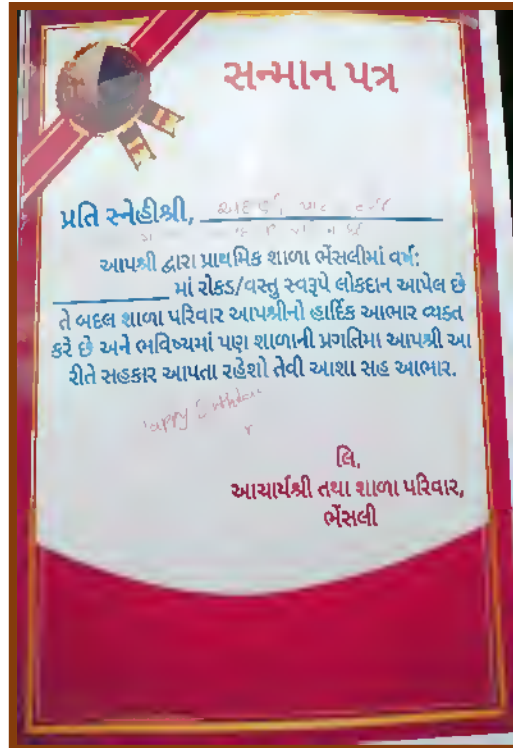 સન્માન પત્ર
પ્રતિ સ્નેહીશ્રી,
આપશ્રી દ્વારા પ્રાથમિક શાળા ભેંસલીમાં વર્ષ:
માં રોકડ/વસ્તુ સ્વરૂપે લોકદાન આપેલ છે
તે બદલ શાળા પરિવાર આપશ્રીનો હાર્દિક આભાર વ્યક્ત
કરે છે અને ભવિષ્યમાં પણ શાળાની પ્રગતિમા આપશ્રી આ
રીતે સહકાર આપતા રહેશો તેવી આશા સહ આભાર.
લિ,
આચાર્યશ્રી તથા શાળા પરિવાર,
ભેંસલી